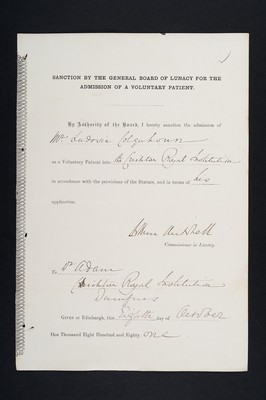 SANCTION BY THE GENERAL BOARD OF LUNACY FOR THE
ADMISSION OF A VOLUNTARY PATIENT.
By Authority of the Board, I hereby sanction the admission of
Mr Ludovic Colquhoun
as a Voluntary Patient into the Crichton Royal Institution
in accordance with the provisions of the Statute, and in terms of his
application.
Commissioner in Lunacy.
To Dr Adam
Crichton Royal Institution
Dumfries
Given at Edinburgh, this Eighth day of October
One Thousand Eight Hundred and Eighty one